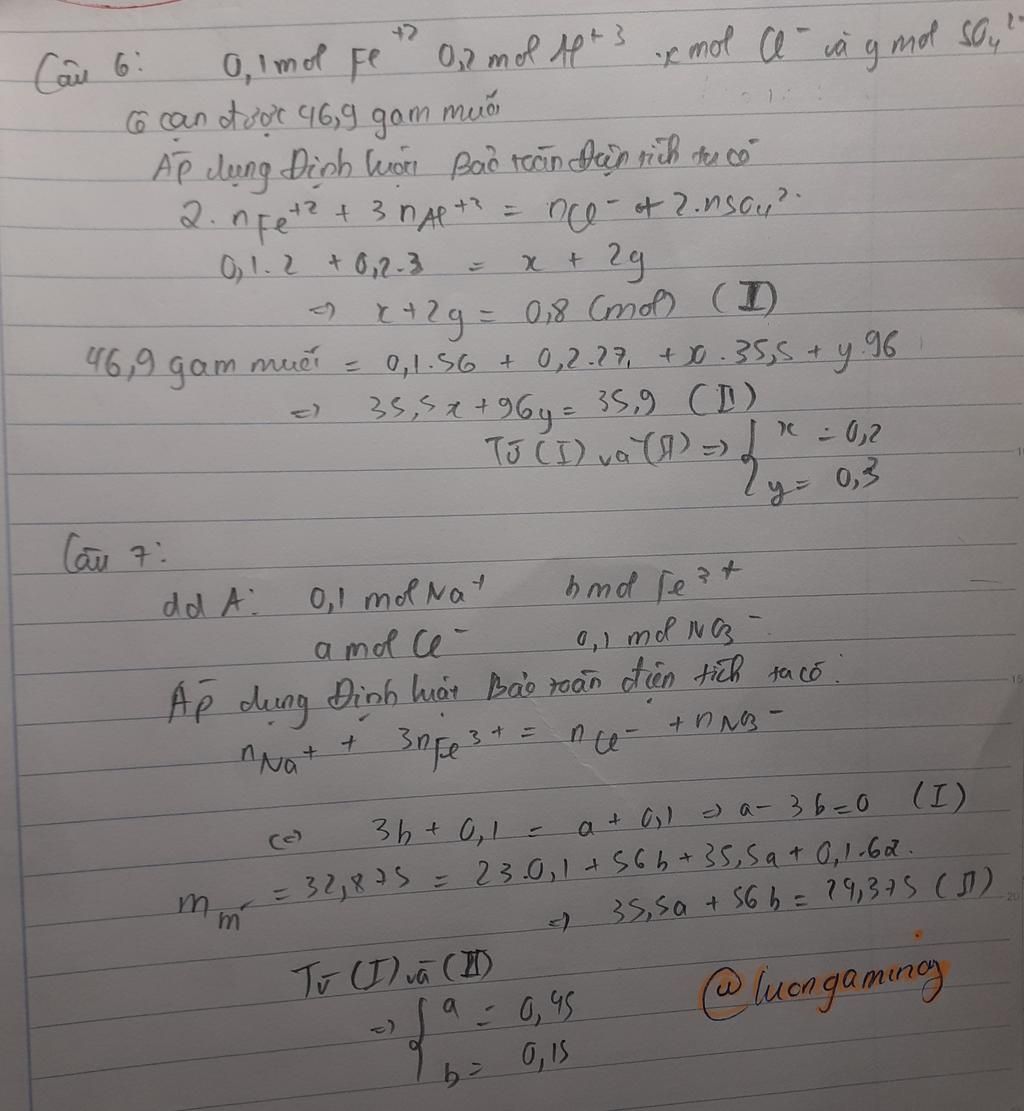 Câu 6: 0,1 mol Fe⁺² 0,2 mol Al⁺³ x mol Cl⁻ và y mol SO₄²⁻
Cô cạn được 46,9 gam muối
Áp dụng Định luật Bảo toàn Điện tích ta có
2. nFe⁺² + 3 nAl⁺³ = nCl⁻ + 2.nSO₄²⁻
0,1.2 + 0,2.3 = x + 2y
=> x+2y = 0,8 (mol) (I)
46,9 gam muối = 0,1.56 + 0,2.27 + x.35,5 + y.96
=> 35,5x+96y = 35,9 (II)
Từ (I) và (II) => { x = 0,2
y = 0,3
Câu 7:
dd A: 0,1 mol Na⁺ b mol Fe³⁺
a mol Cl⁻ 0,1 mol NO₃⁻
Áp dụng Định luật Bảo toàn điện tích ta có:
nNa⁺ + 3nFe³⁺ = nCl⁻ + nNO₃⁻
<=> 3b + 0,1 = a + 0,1 => a - 3b = 0 (I)
m m' = 32,875 = 23.0,1 + 56b + 35,5a + 0,1.62.
=> 35,5a + 56b = 24,375 (II)
Từ (I) và (II)
=> { a = 0,45
b = 0,15
@luongaming